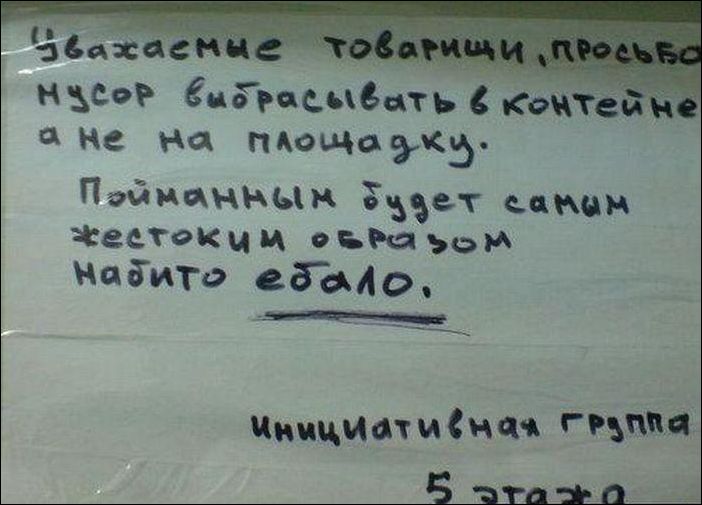 Уважаемые товарищи, просьба
мусор выбрасывать в контейне
а не на площадку.
Пойманным будет самым
жестоким образом
набито ебало.
инициативная группа
5 этажа